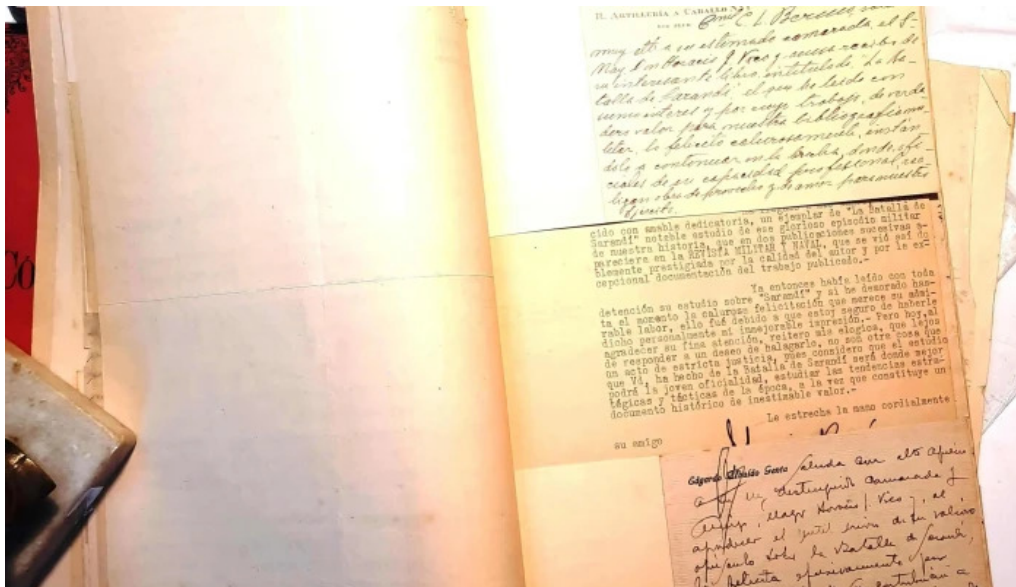 R. ARTILLERÍA A CABALLO Nº
C. L. Beruti, saluda
muy att. a su estimado camarada, el S.
May. Don Horacio J. Vico y acusa recibo de
su interesante libro, intitulado "La Ba-
talla de Sarandí" el que he leído con
sumo interes y por cuyo trabajo, de verda
dero valor para nuestra bibliografía mi-
litar, lo felicito calurosamente, instán
dole a continuar en la brecha, donde ofi-
ciales de su capacidad profesional, rea-
lizan obra de provecho y de amor para nuestro
Ejercito.
cido con amable dedicatoria, un ejemplar de "La Batalla de
Sarandí" notable estudio de ese glorioso episodio militar
de nuestra historia, que en dos publicaciones sucesivas a-
pareciera en la REVISTA MILITAR Y NAVAL, que se vió así do
blemente prestigiada por la calidad del autor y por la ex-
cepcional documentación del trabajo publicado.-
Ya entonces había leído con toda
detención su estudio sobre "Sarandí" y si he demorado has-
ta el momento la calurosa felicitación que merece su admi-
rable labor, ello fué debido a que estoy seguro de haberle
dicho personalmente mi inmejorable impresión.- Pero hoy, al
agradecer su fina atención, reitero mis elogios, que lejos
de responder a un deseo de halagarlo, no son otra cosa que
un acto de estricta justicia, pues considero que el estudio
que Vd. ha hecho de la Batalla de Sarandí será donde mejor
podrá la joven oficialidad, estudiar las tendencias estra-
tégicas y tácticas de la época, a la vez que constituye un
documento histórico de inestimable valor.-
Le estrecha la mano cordialmente
su amigo
Edgardo Ubaldo Genta saluda con alto aprecio
a su distinguido camarada y
amigo, Mayor Horacio J. Vico, al
agradecer el gentil envío de su valioso
opúsculo sobre la Batalla de Sarandí,
felicita efusivamente por
contribución a